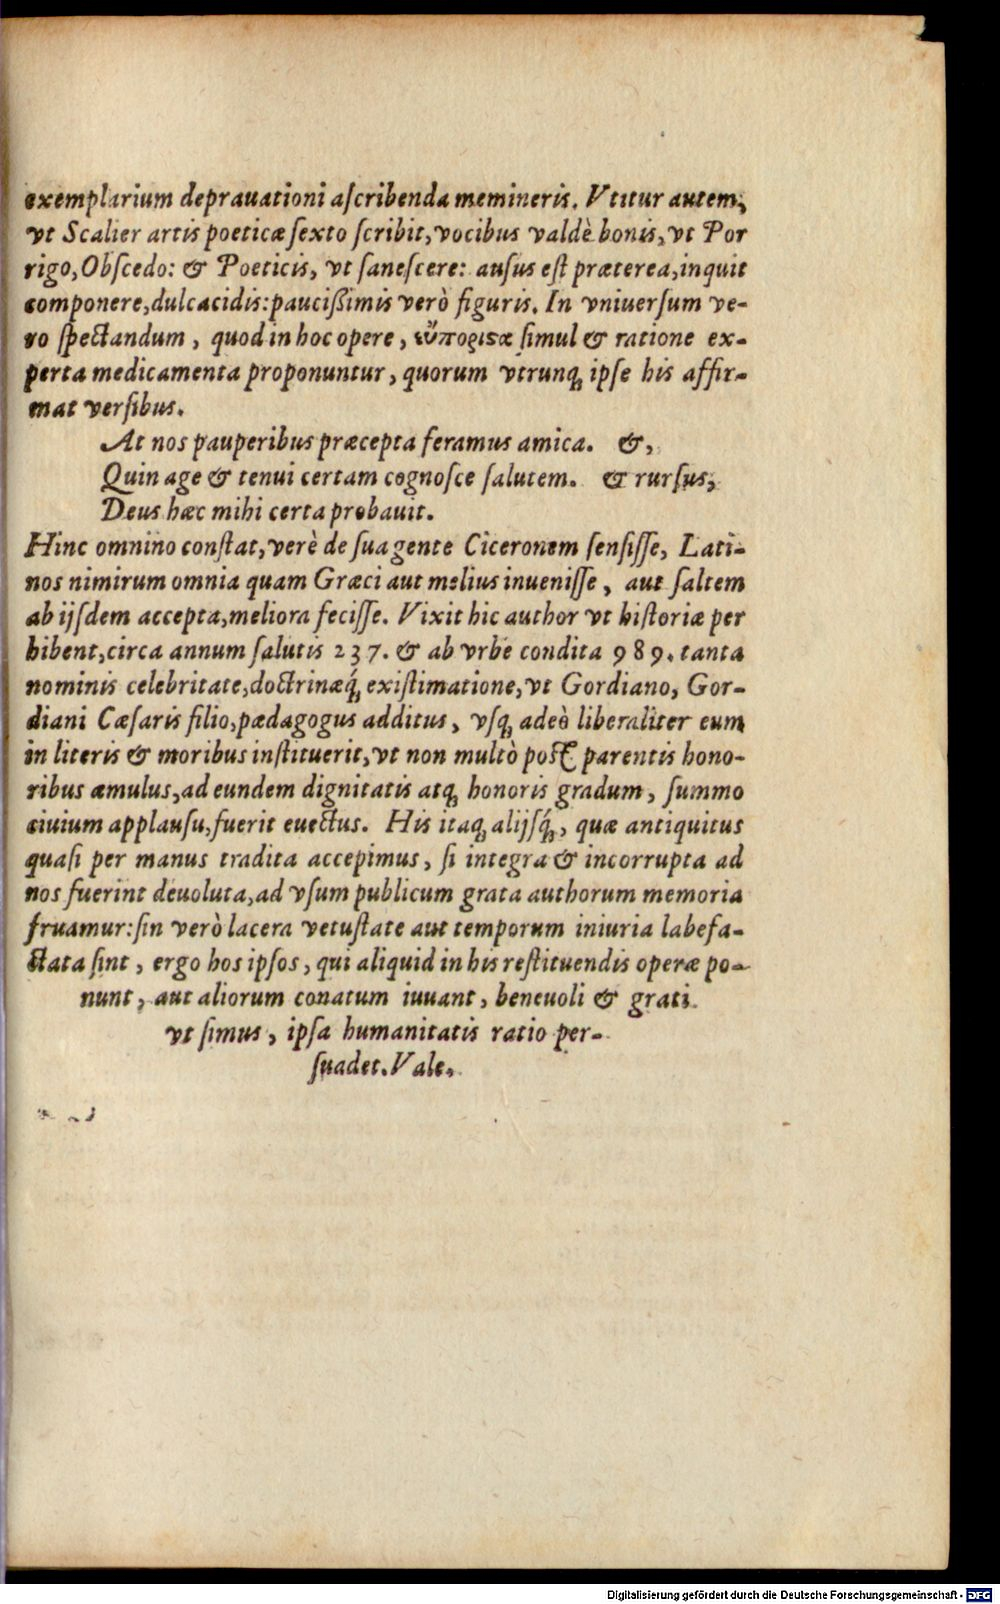 exemplarium deprauationi aſcribenda memineris. Vtitur autem,
vt Scalier artis poeticæ ſexto ſcribit, vocibus valdè bonis, vt Por
rigo, Obſcedo: & Poeticis, vt ſaneſcere: auſus eſt præterea, inquit
componere, dulcacidis: pauciſsimis verò figuris. In vniuerſum ve-
ro ſpectandum, quod in hoc opere, ἐυπορισα ſimul & ratione ex-
perta medicamenta proponuntur, quorum vtrunq; ipſe his affir-
mat verſibus.
At nos pauperibus præcepta feramus amica. &,
Quin age & tenui certam cognoſce ſalutem. & rurſus,
Deus hæc mihi certa probauit.
Hinc omnino conſtat, verè de ſua gente Ciceronem ſenſiſſe, Lati-
nos nimirum omnia quam Græci aut melius inueniſſe, aut ſaltem
ab ijſdem accepta, meliora feciſſe. Vixit hic author vt hiſtoriæ per
hibent, circa annum ſalutis 237. & ab vrbe condita 989. tanta
nominis celebritate, doctrinæq́; exiſtimatione, vt Gordiano, Gor-
diani Cæſaris filio, pædagogus additus, vſq; adeò liberaliter eum
in literis & moribus inſtituerit, vt non multò pòſt parentis hono-
ribus æmulus, ad eundem dignitatis atq; honoris gradum, ſummo
ciuium applauſu, fuerit euectus. His itaq; alijſq́;, quæ antiquitus
quaſi per manus tradita accepimus, ſi integra & incorrupta ad
nos fuerint deuoluta, ad vſum publicum grata authorum memoria
fruamur: ſin verò lacera vetuſtate aut temporum iniuria labefa-
ctata ſint, ergo hos ipſos, qui aliquid in his reſtituendis operæ po-
nunt, aut aliorum conatum iuuant, beneuoli & grati
vt ſimus, ipſa humanitatis ratio per-
ſuadet. Vale.
Digitalisierung gefördert durch die Deutsche Forschungsgemeinschaft - DFG